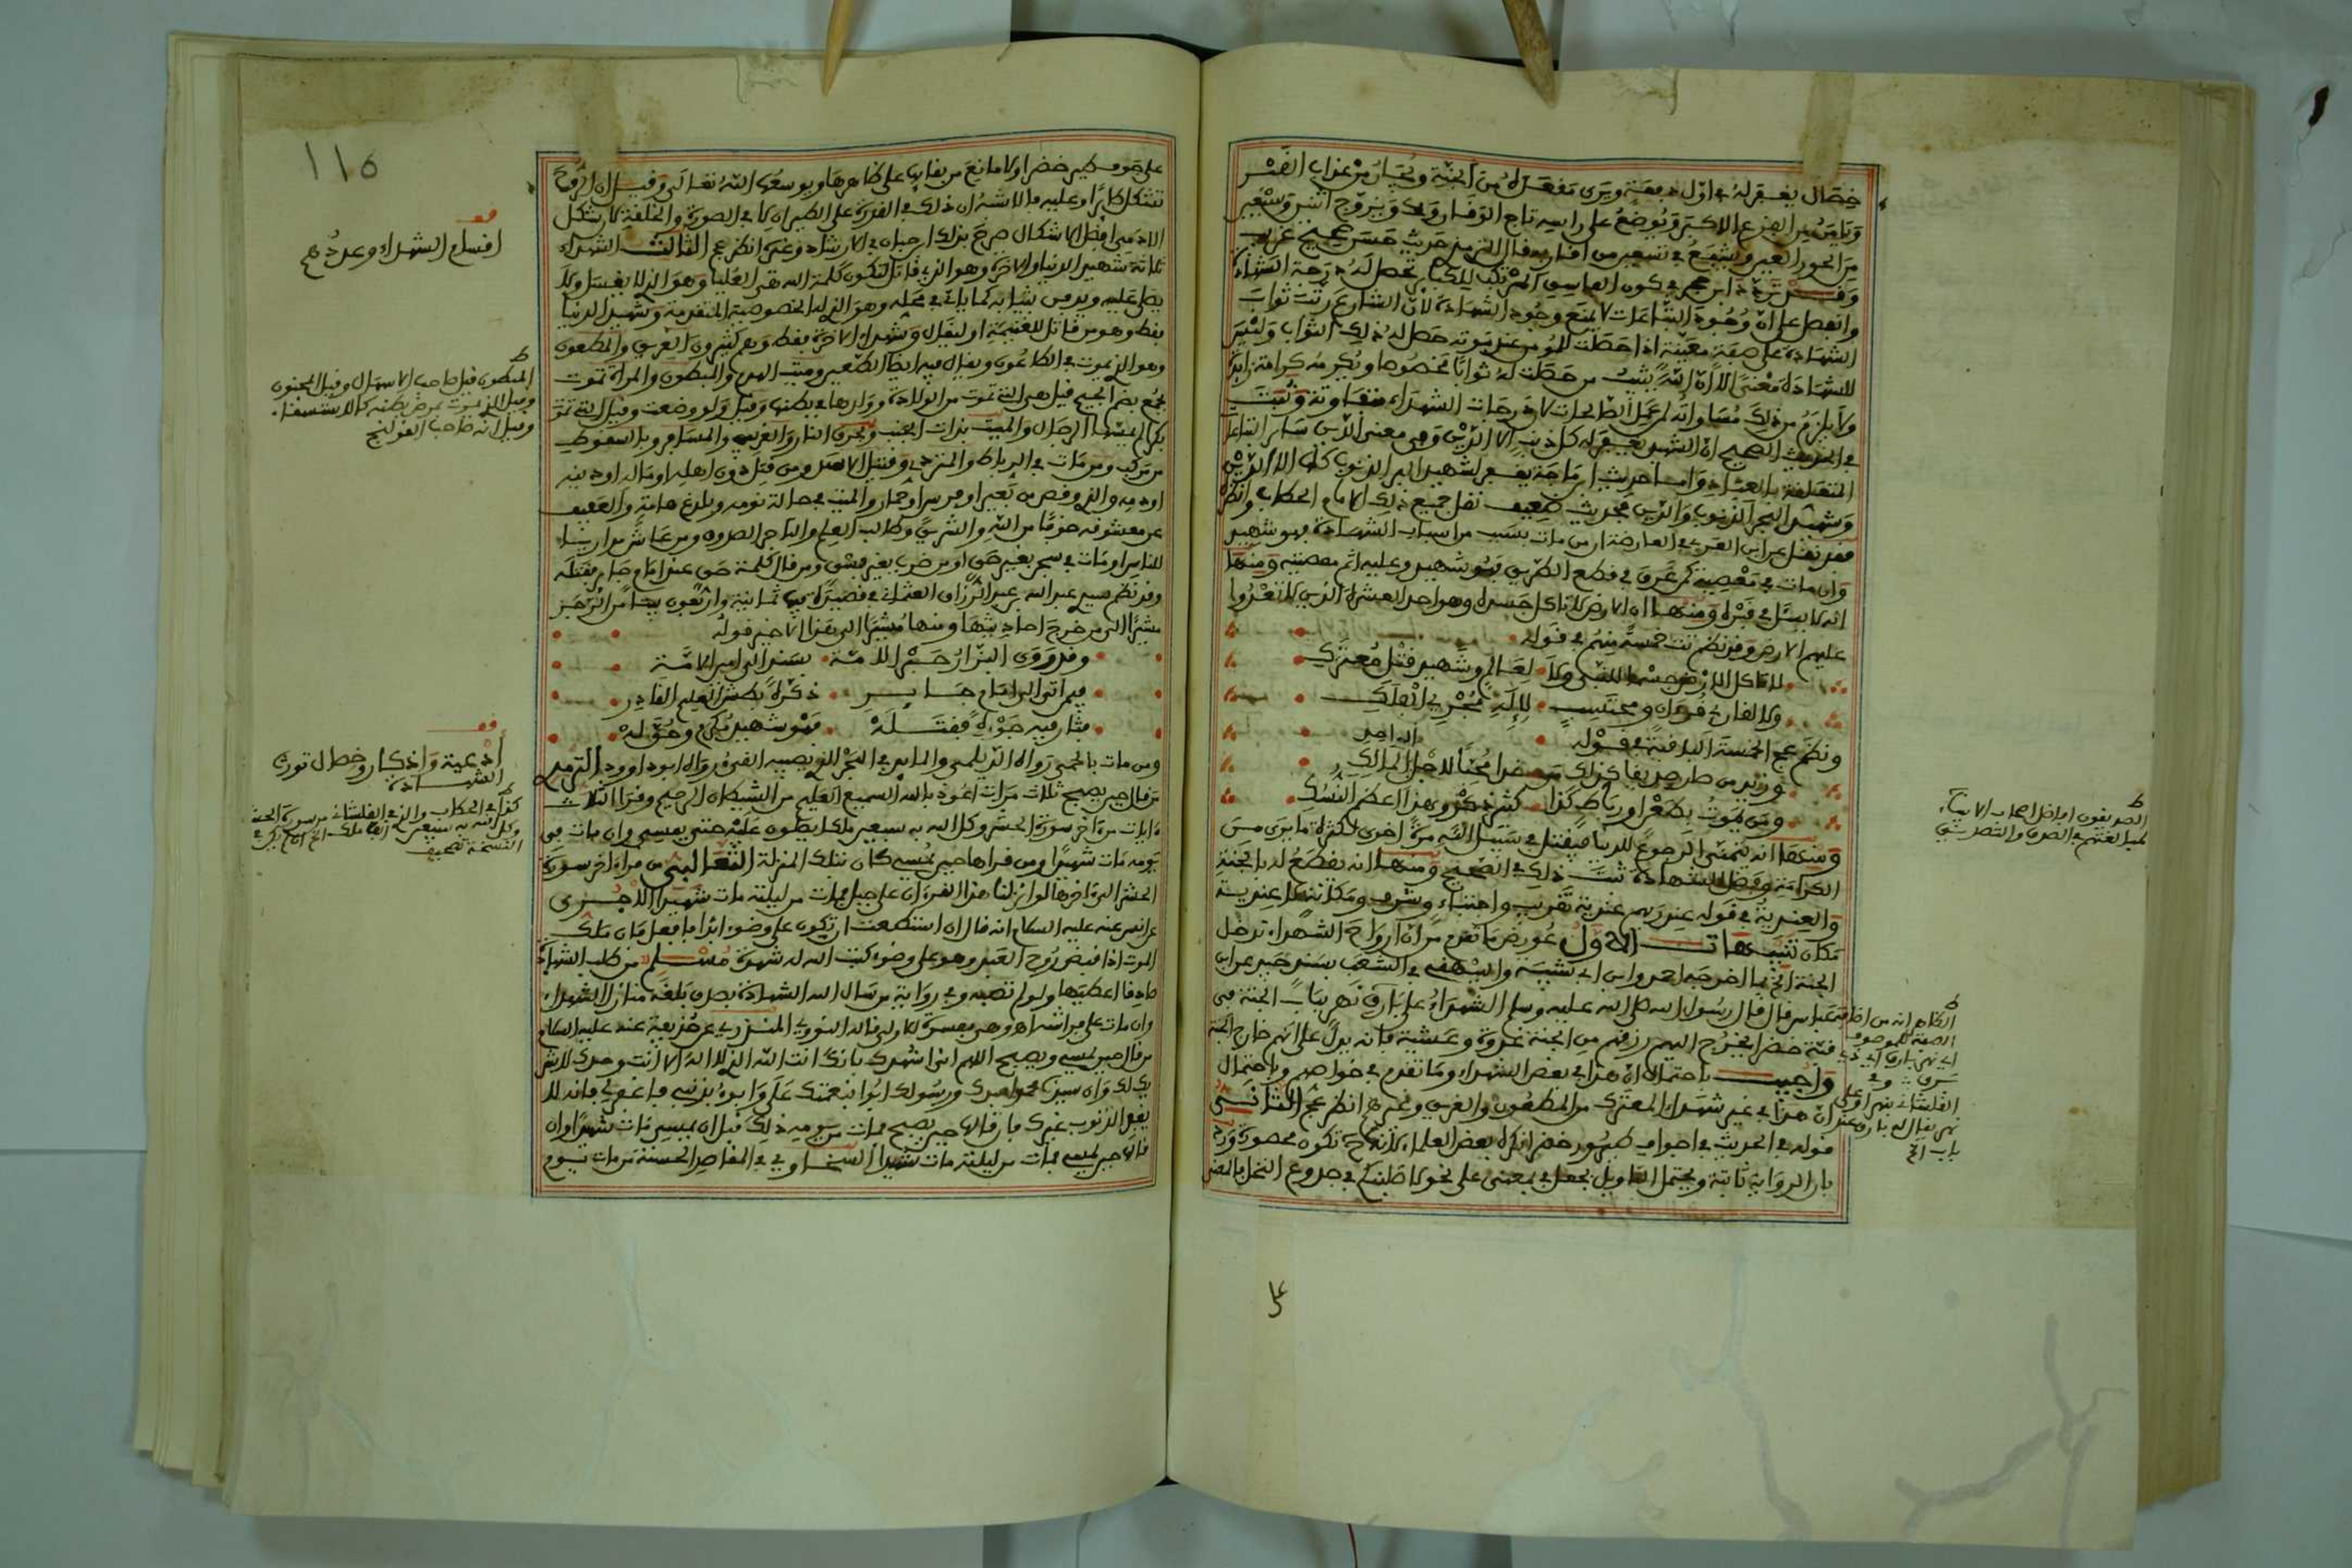 خصال يغفر له في اول دفعة ويرى مقعده من الجنة ويجار من عذاب القبر
ويامن من الفزع الاكبر ويوضع على راسه تاج الوقار ويزوج اثنين وسبعين
من الحور العين ويشفع في سبعين من اقاربه قال الترمذي حديث حسن صحيح غريب
وقد تردد ابن حجر في كون العاصي المرتكب للكبائر تحصل له درجة الشهادة
وانفصل على ان وجود التباعات لا يمنع وجود الشهادة لان الشارع رتب ثواب
الشهادة على صفة معينة اذا حصلت للمومن عند موته حصل له ذلك الثواب وليس
للشهادة معنى الا ان الله يثيب من حصلت له ثوابا مخصوصا ويكرمه كرامة زائدة
ولا يلزم من ذلك مساواته لمن عمل الصالحات لان درجات الشهداء متفاوتة وثبت
في الحديث الصحيح ان الشهيد يغفر له كل ذنب الا الدين وفي معنى الدين سائر التباعات
المتعلقة بالعباد واما حديث ابن ماجة يغفر لشهيد البر الذنوب كلها الا الدين
وشهيد البحر الذنوب والدين فحديث ضعيف نقل جميع ذلك الامام الحطاب وانظر
فقد نقل عن ابن العربي في العارضة ان من مات بسبب من اسباب الشهادة فهو شهيد
وان مات في معصية كمن غرق في قطع الطريق فهو شهيد وعليه اثم معصيته ومنها
انه لا يسئل في قبره ومنها ان الارض لا تاكل جسده وهو احد العشرة الذين لا تعدوا
عليهم الارض وقد نظم تت خمسة منهم في قوله
لا تاكل الارض جسما للنبي ولا لعالم وشهيد قتل معترك
ولا لقارئ قرءان ومحتسب اذانه لاله مجري الفلك
ونظم عج الخمسة الباقية في قوله
وزيد من صار صديقا كذلك من غدا محبا لاجل المالك
ومن يموت بطعن او رباط كذا كثير ذكر وهذا اعظم النسك
ومنها انه يتمنى الرجوع للدنيا فيقتل في سبيل الله مرة اخرى لكثرة ما يرى من
الكرامة وفضل الشهادة ثبت ذلك في الصحيح ومنها انه يقطع له بالجنة
والعندية في قوله عند ربهم عندية تقريب واجتباء وشرف ومكانة لا عندية
مكان تنبيهات الاول عورض ما تقدم من ان ارواح الشهداء تدخل
الجنة الخ بما اخرجه احمد وابن ابي شيبة والبيهقي في الشعب بسند حسن عن ابن
عباس قال قال رسول الله صلى الله عليه وسلم الشهداء على بارق نهر بباب الجنة في
قبة خضراء يخرج اليهم رزقهم من الجنة غدوة وعشية فانه يدل على انهم خارج الجنة
واجيب باحتمال ان هذا في بعض الشهداء وما تقدم في خواصهم وباحتمال
ان هذا في غير شهداء المعترك من المطعون والغريق وغيرهم انظر عج الثاني
قوله في الحديث في اجواف طيور خضر انكره بعض العلماء لانها ح تكون محصورة ورد
بان الرواية ثابتة ويحتمل التاويل بجعل في بمعنى على نحو لاصلبنكم في جذوع النخل
الصديقون افاضل اصحاب الانبياء
لمبالغتهم في الصدق والتصديق
الظاهر انه من اضافة
الصفة للموصوف
اي نهر بارق اي ذي
باب الخ
على
١١٥
على جوف طير خضر اولا مانع من بقاء في على ظاهرها ويوسعها الله تعالى وقيل ان الروح
تتشكل طائرا وعليه فالاشبه ان ذلك في القدرة على الطيران لا في الصورة والخلقة لان شكل
الادمي افضل الاشكال صرح بذلك ابن حيان في الارشاد وغيره انظر عج الثالث الشهداء
ثلاثة شهيد الدنيا والاخرة وهو الذي قاتل لتكون كلمة الله هي العليا وهو الذي لا يغسل ولا
يصلى عليه ويدفن بثيابه كما ياتي في محله وهو الذي له الخصوصية المتقدمة وشهيد الدنيا
فقط وهو من قاتل للغنيمة او ليقال وشهيد الاخرة فقط وهم كثيرون الغريق والمطعون
وهو الذي يموت في الطاعون ويقال فيه ايضا الطعين وميت الهدم والمبطون والمراة تموت
بجمع بضم الجيم قيل هي التي تموت من الولادة وولدها في بطنها وقيل ولو وضعت وقيل التي تموت
بكرا لم يمسها الرجال والميت بذات الجنب وبحرق النار والغريب والمسافر وبالسقوط
من مركب ومن مات في الرباط والمتردي وقتيل الاسد ومن قتل دون اهله او ماله او دينه
او دمه والذي وقص من بعير او فرس او حمار والميت في حالة نومه وبلدغ هامة والعفيف
عن معشوقه خوفا من الله والشرق وطالب العلم والتاجر الصدوق ومن عاش مداريا
للناس او مات في سجن بغير حق او من ضرب بغير فسق ومن قال كلمة حق عند امام جائر فقتله
وقد نظم سيدي عبد الله بن عبد الرزاق العثماني في قصيدة ثمانية واربعون بيتا من الرجز
مشيرا الى من خرج احاديثها ومنها مشيرا الى هذا الاخير قوله
وقد روى البزار حبر الامة بسند الى امير الامة
فيمن اتى الى امام جائر ذكره بطش العليم القادر
فثار فيه جوره فقتله فهو شهيد مكرم وحق له
ومن مات بالحمى رواه الديلمي والمائد في البحر الذي يصيبه القيء رواه ابو داوود الترمذي
من قال حين يصبح ثلاث مرات اعوذ بالله السميع العليم من الشيطان الرجيم وقرا الثلاث
ايات من ءاخر سورة الحشر وكل الله به سبعين ملكا يصلون عليه حتى يمسي وان مات في
يومه مات شهيدا ومن قراها حين يمسي كان بتلك المنزلة الثعالبي من قراء اخر سورة
الحشر الى ءاخرها لو انزلنا هذا القرءان على جبل فمات من ليلته مات شهيدا الاجري
عن انس عنه عليه السلام انه قال ان استطعت ان تكون على وضوء ابدا فافعل فان ملك
الموت اذا قبض روح العبد وهو على وضوء كتب الله له شهادة مسلم من طلب الشهادة
صادقا اعطيها ولو لم تصبه وفي رواية من سال الله الشهادة بصدق بلغه منازل الشهداء
وان مات على فراشه اهـ
من قال حين يمسي ويصبح اللهم اني اشهدك بانك انت الله الذي لا اله الا انت وحدك لا شريك
لك وان سيدنا محمدا عبدك ورسولك ابوء بنعمتك علي وابوء بذنبي فاغفر لي فانه لا
يغفر الذنوب غيرك فان قالها حين يصبح فمات من يومه ذلك قبل ان يمسي مات شهيدا وان
قالها حين يمسي فمات من ليلته مات شهيدا السخاوي في المقاصد الحسنة من مات بيوم
قف
اقسام الشهداء وعددهم
المبطون قيل صاحب الاسهال وقيل المجنون
وقيل الذي يموت بمرض بطنه كالاستسقاء
وقيل انه صاحب القولنج
قف
أدعية واذكار وخصال تورث
الشهادة